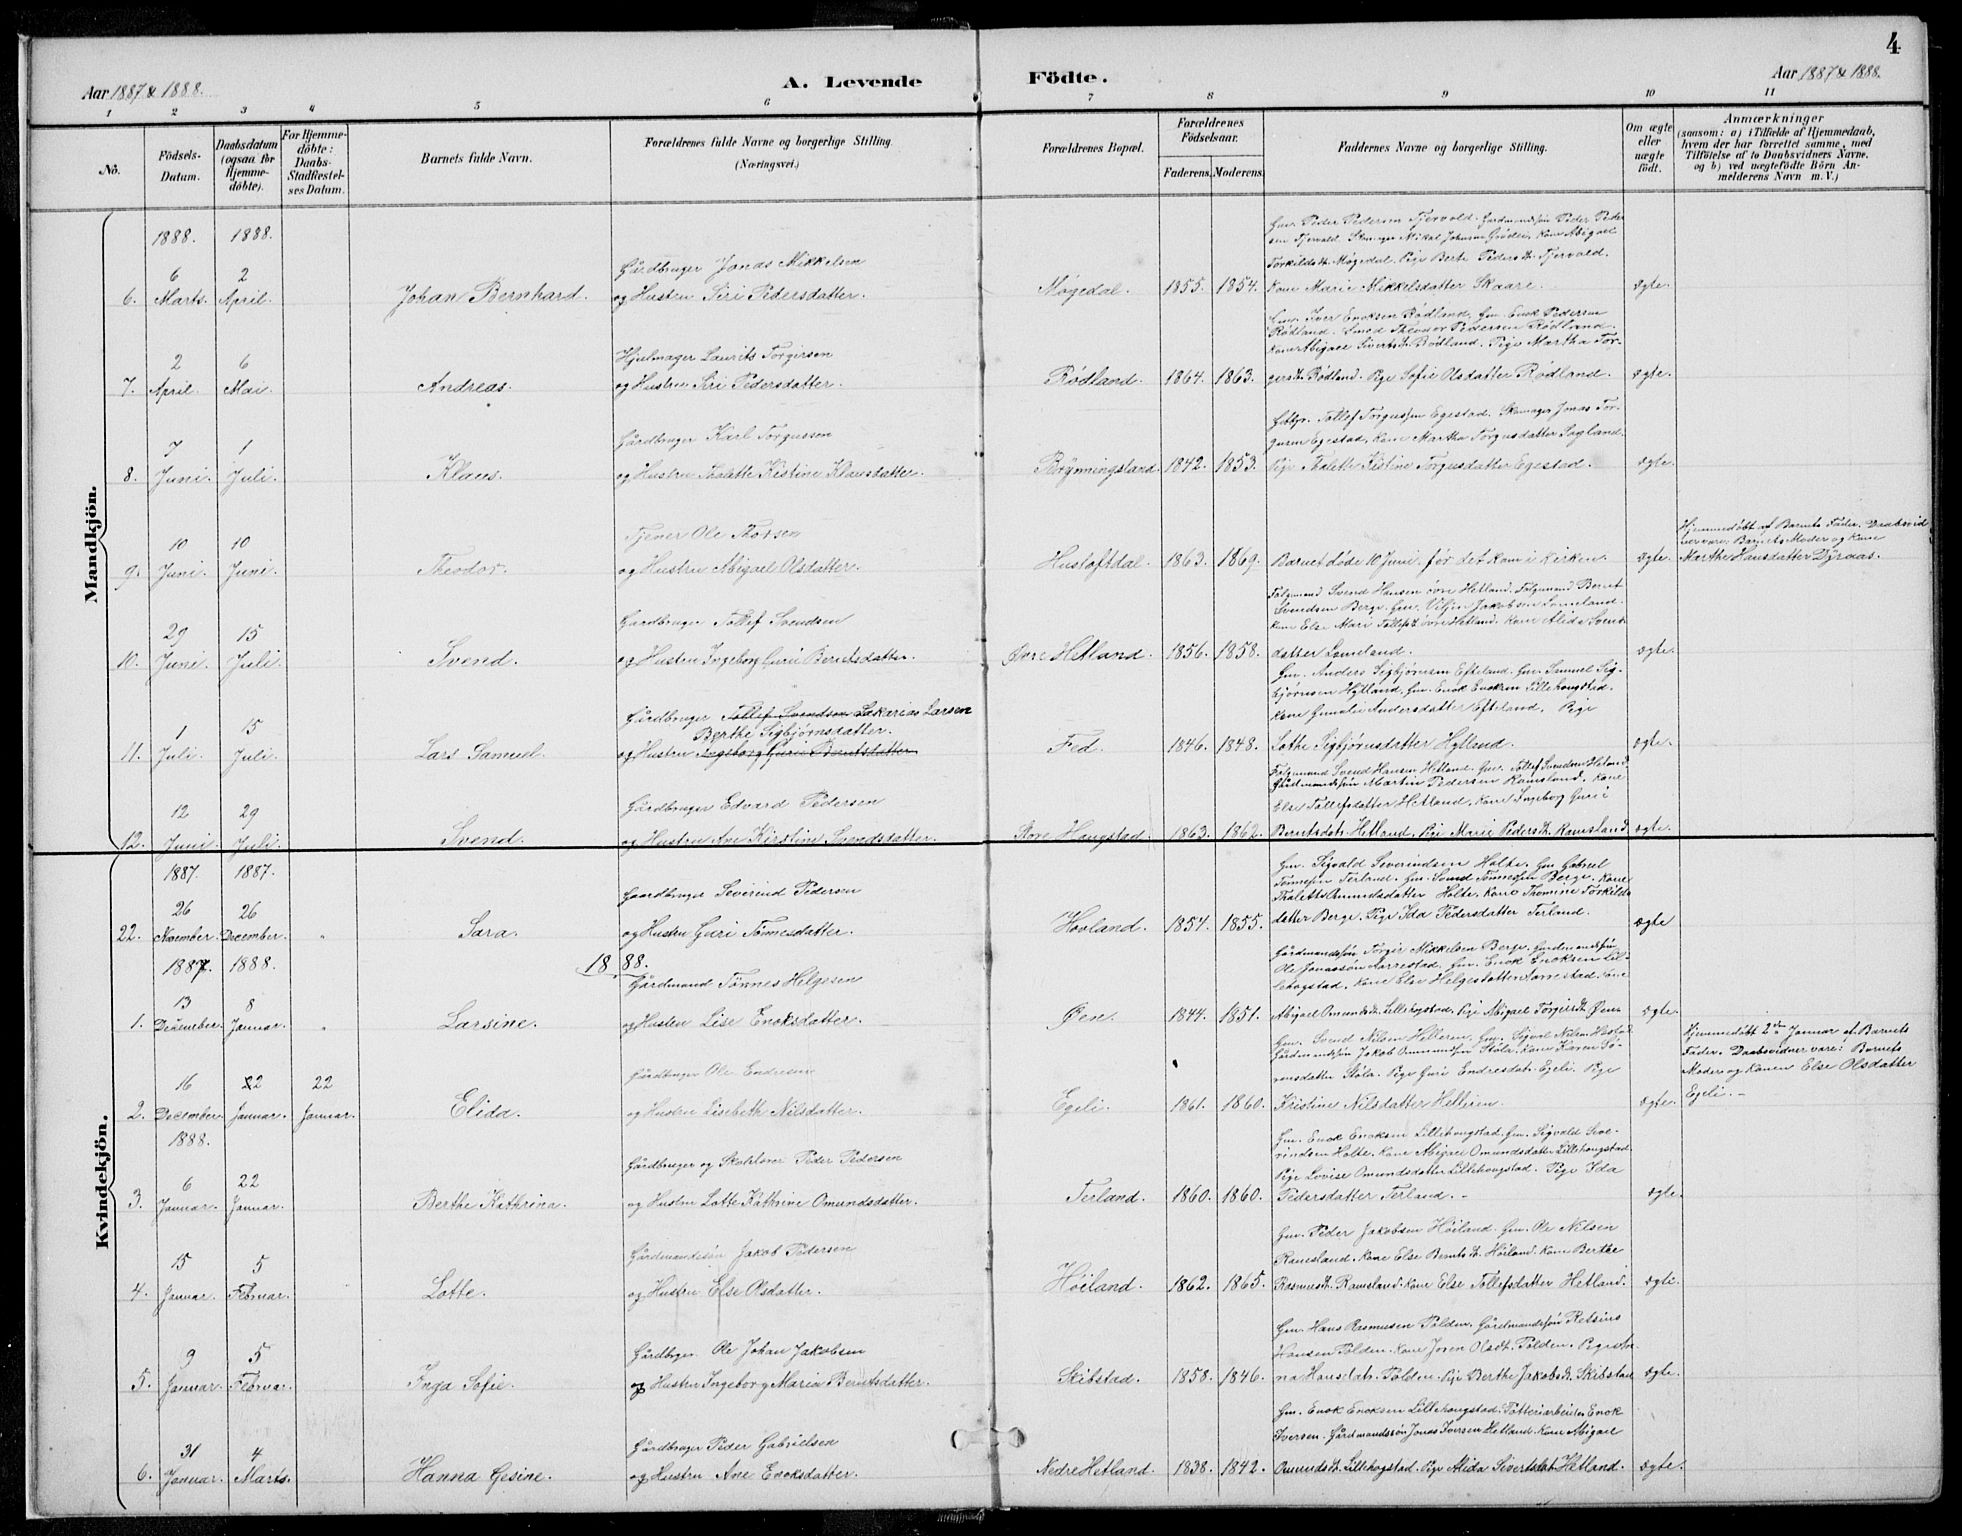 4
Aar 1887 & 1888.
A. Levende Födte.
Aar 1887 & 1888.
1 2 3 4 5 6 7 8 9 10 11
No.
Födsels-Datum.
Daabsdatum (ogsaa for Hjemme-döbte).
For Hjemme-döbte: Daabs-Stadfæstel-ses Datum.
Barnets fulde Navn.
Forældrenes fulde Navne og borgerlige Stilling (Næringsvei.)
Forældrenes Bopæl.
Forældrenes Födselsaar.
Faderens. Moderens.
Faddernes Navne og borgerlige Stilling.
Om ægte eller uægte födt.
Anmærkninger
(saasom: a) i Tilfælde af Hjemmedaab,
hvem der har forrettet samme, med
Tilföielse af to Daabsvidners Navne.
og b) ved uægtefödte Börn An-
melderens Navn m. V.)
Mandkjön.
1888. 1888.
6. 6 Marts. 2 April. Johan Bernhard. Gårdbruger Jonas Mikkelsen
og Hustru Siri Pedersdatter. Møgedal. 1855. 1854.
Gm. Peder Pedersen Tjervold. Gardmandssøn Peder Peder
sen Tjervold. Skomager Mikal Johnsen Grødei, Kone Abigael
Torkildsdt. Møgedal. Pige Berte Pedersdt. Tjervold.
Kone Marie Mikkelsdatter Skaare. ægte.
7. 2 April. 6 Mai. Andreas. Hjulmager Laurits Torgirsen
og Hustru Siri Pedersdatter. Rødland. 1864. 1863.
Gm. Iver Enoksen Rødland, Gm. Enok Pedersen
Rødland. Smed Theodor Pedersen Rødland.
Kone Abigael Sivertsdt. Rødland. Pige Martha Tor-
gersdt. Rødland. Pige Sofie Olsdatter Rødland. ægte.
8. 7 Juni. 1 Juli. Klaus. Gårdbruger Karl Torgussen
og Hustru Thalette Kistine Klausdatter. Brynningsland 1842. 1853.
Tollef Torgussen Egestad. Skomager Jonas Tor-
gusen Egestad, Kone Martha Torgusdatter Sagland.
Pige Talette Kistine Torgusdatter Egestad. ægte.
9. 10 Juni. 10 Juni. Theodor. Tjener Ole Thorsen
og Hustru Abigael Olsdatter. Hustoftdal. 1863. 1869. Barnet døde 10 Juni. før det kom i Kirken. ægte.
Hjemmedøbt af Barnets Fader. Daabsvid
nervare: Barnets Moder og Kone
Marthe Hansdatter Dyraas.
10. 29 Juni. 15 Juli. Svend. Gårdbruger Tollef Svendsen
og Hustru Ingeborg Guri Berntsdatter. Øvre Hetland. 1856. 1858.
Følgemand Svend Hansen øvre Hetland. Følgemand Bernt
Svendsen Berge. Gm. Jakobsen Lomeland.
Kone Else Mari Tollefsdt. øvre Hetland. Kone Alida Svens-
datter Lomeland. ægte.
11. 1 Juli. 15 Juli. Lars Samuel. Gårdbruger Tollef Svendsen Sakarias Larsen
Berthe Sigbjørnsdatter.
og Hustru Ingeborg Guri Berntsdatter Fed. 1846. 1848.
Gm. Anders Sigbjørnsen Efteland. Gm. Samuel Sig-
bjørnsen Hytland, Gm. Enok Enoksen Lillehougstad.
Kone Gunalie Andersdatter Efteland. Pige
Lothe Sigbjørnsdatter Hytland. ægte.
12. 12 Juni. 29 Juli. Svend. Gårdbruger Edvard Pedersen
og Hustru Ane Kirstine Svendsdatter. Store Hougstad. 1863. 1862.
Følgemand Svend Hansen Hetland. Gm. Tollef Svendsen Hetland
Gårdmandssøn Martin Pedersen Ramsland. Kone
Else Tollefsdatter Hetland, Kone Ingeborg Guri
Berntsdatr. Hetland. Pige Marie Pedersdt. Ramsland. ægte.
Kvindekjön.
1887. 1887.
22. 26 November. 26 December. Sara. Gaardbruger Severind Pedersen
og Hustru Guri Tønnesdatter. Hovland. 1854. 1855.
Gm. Sigvald Severindsen Holte. Gm Gabriel
Tønnesen Terland. Gm. Svend Tønnessen Berge. Kone
Holte, Kone Thomine Torkilds
datter Berge. Pige Ida Pedersdatter Terland. ægte
1887. 1888. 1888.
1. 13 December. 8 Januar. Larsine. Gårdmand Tønnes Helgesen
og Husteu Lise Enoksdatter. Øen. 1844. 1851.
Gårdmandssøn Torgir Mikkelsen Berge. Gardmandssøn
Ole Jonassøn Aarrestad. Gm. Enok Enoksen Lil-
lehogstad. Kone Else Helgesdatter Aarrestad. Kone
Abigael Omundsdt. Lillehogstad. Pige Abigael Torgersdt. Øen. ægte.
2. 16 December. 22 Januar. 22 Januar. Elida. Gårdbruger Ole Endresen
og Hustru Lisebeth Nilsdatter. Egeli. 1861. 1860.
Gm. Svend Nilsen Helleren, Gm. Sigvol Nilsen Hestad.
Gårdmandssøn Jakob Ommundsen Støla. Kone Karen Sø-
rensdatter Støla. Pige Guri Endresdatr. Egeli. Pige
Kristine Nilsdatter Helleren. ægte.
Hjemmedøbt 2den Januar af Barnets
Fader. Daabsvidner vare: Barnets
Moder og Konen Else Olsdatter
Egeli. —
1888.
3. 6 Januar. 22 Januar. Berthe Kathrina. Gårdbruger og Skoletører Peder Pedersen
og Hustru Lotte Kathrine Omundsdatter. Terland. 1860. 1860.
Gm. Enok Enoksen Lillehougstad. Gm. Sigvald Seve-
rindsen Holte. Kone Abigael Omundsdatter Lillehougstad.
Pige Lovise Omundsdatter Lillehougstad. Pige Ida
Pedersdatter Terland. — ægte.
4. 15 Januar. 5 Februar. Lotte. Gårdmandssøn Jakob Pedersen
og Hustru Else Olsdatter. Høiland. 1862. 1865.
Gm. Peder Jakobsen Höiland. Gm. Ole Nilsen
Ramsland. Kone Else Berntsdt. Höiland. Kone Berthe
Rasmusdt. Ramsland. Kone Else Tollefsdatter Hetland. ægte.
5. 9 Januar. 5 Februar. Inga Sofie. Gårdbrger Ole Johan Jakobsen
og Hustru Ingeborg Maria Berntsdatter. Skibstad. 1858. 1846.
Gm. Hans Rasmussen Tolden. Gårdmandssøn Retsius
Hansen Tolden. Kone Joren Olsdt. Tolden. Pige An
na Hansdatr. Tolden. Pige Berthe Jakobsdt. Skibstad ægte.
6. 31 Januar. 4 Marts. Hanna Gesine. Gårdbruger Peder Gabrielsen
og Hustru Ane Enoksdatter. Nedre Hetland. 1838. 1842.
Gm. Enok Enoksen Lillehougstad. Potteriarbeider Enok
Iversen. Gårdmandssøn Jonas Iversen Hetland. Kone Abigael
Omundsdt. Lillehogstad. Pige Alida Sivertsdatr Hetland. ægte.